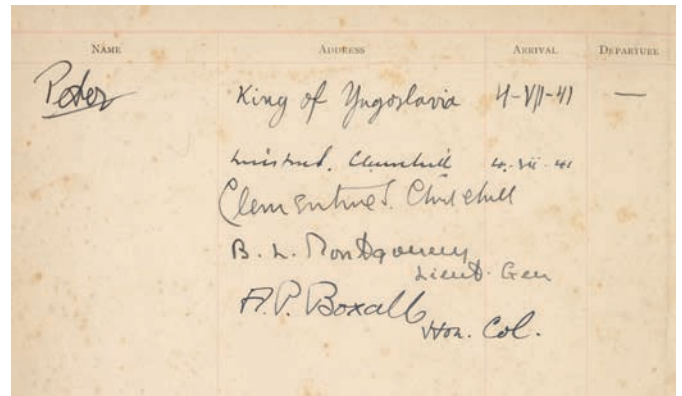 NAME ADDRESS ARRIVAL DEPARTURE
Peter King of Yugoslavia 4-VII-41 —
Winston S. Churchill 4. vii. 41
Clementine S. Churchill
B. L. Montgomery
Lieut. Gen
A. P. Boxall
Hon. Col.